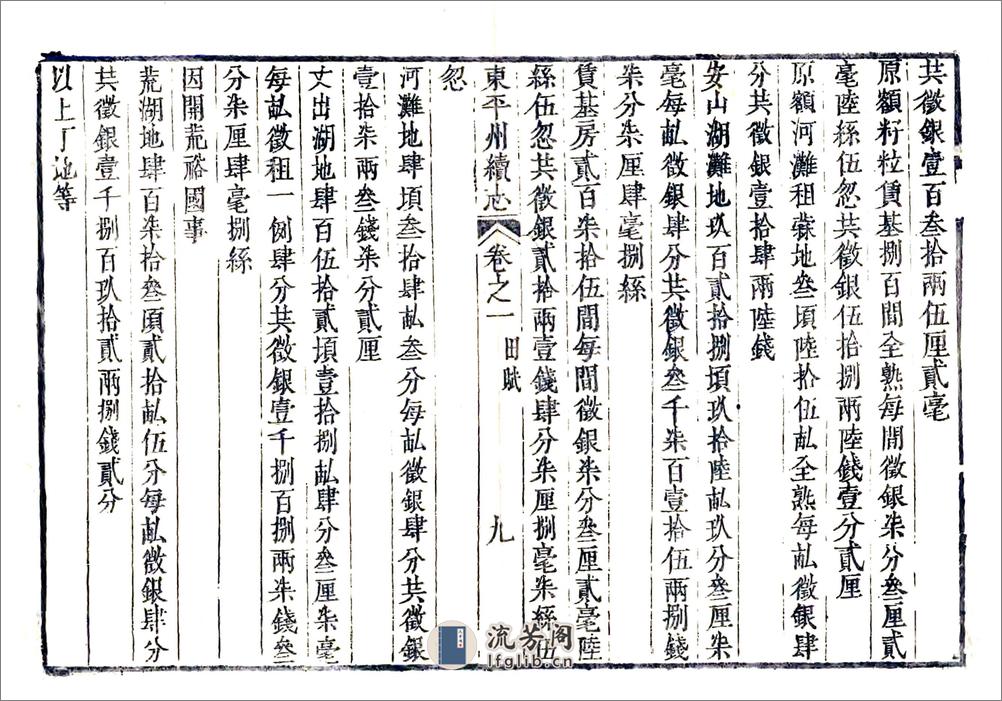 共徵銀壹百叁拾兩伍厘貳毫
原額籽粒賃基捌百間全熟每間徵銀柒分叁厘貳
毫陸絲伍忽共徵銀伍拾捌兩陸錢壹分貳厘
原額河灘租蔴地叁頃陸拾伍畝全熟每畝徵銀肆
分共徵銀壹拾肆兩陸錢
安山湖灘地玖百貳拾捌頃玖拾陸畝玖分叁厘柒
毫每畝徵銀肆分共徵銀叁千柒百壹拾伍兩捌錢
柒分柒厘肆毫捌絲
賃基房貳百柒拾伍間每間徵銀柒分叁厘貳毫陸
絲伍忽共徵銀貳拾兩壹錢肆分柒厘捌毫柒絲伍
東平州續志 卷之一 田賦 九
忽
河灘地肆頃叁拾肆畝叁分每畝徵銀肆分共徵銀
壹拾柒兩叁錢柒分貳厘
丈出湖地肆百伍拾貳頃壹拾捌畝肆分叁厘柒毫
每畝徵租一例肆分共徵銀壹千捌百捌兩柒錢叁
分柒厘肆毫捌絲
因開荒裕國事
荒湖地肆百柒拾叁頃貳拾畝伍分每畝徵銀肆分
共徵銀壹千捌百玖拾貳兩捌錢貳分
以上丁地等
流芳阁
lfglib.cn